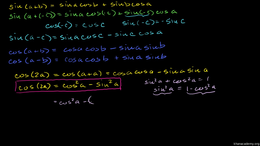 sin(a+b) = sin a cos b + sin b cos a
sin(a+(-c)) = sin a cos(-c) + sin(-c) cos a
cos(-c) = cos c sin(-c) = -sin c
sin(a-c) = sin a cos c - sin c cos a
cos(a+b) = cos a cos b - sin a sin b
cos(a-b) = cos a cos b + sin a sin b
cos(2a) = cos(a+a) = cos a cos a - sin a sin a
cos(2a) = cos²a - sin²a
sin²a + cos²a = 1
sin²a = 1-cos²a
= cos²a - (